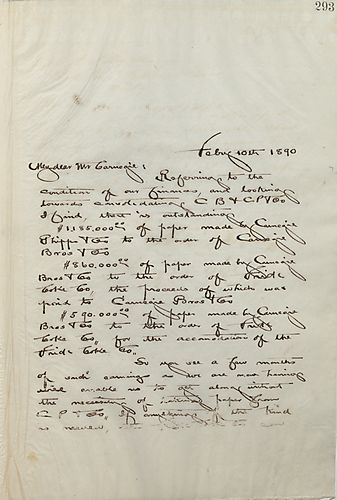 293
Feby 10th 1890
My dear Mr Carnegie;
Referring to the
condition of our finances, and looking
towards consolidating C B & C P & Co
I find, there is outstanding
$1,185.000.00 of paper made by Carnegie
Phipps & Co to the order of Carnegie
Bros & Co
$860.000.00 of paper made by Carnegie
Bros & Co to the order of Frick
Coke Co, the proceeds of which was
paid to Carnegie Bros & Co
$590.000.00 of paper made by Carnegie
Bros & Co to the order of Frick
Coke Co, for the accomodation of the
Frick Coke Co.
So you see a few months
of such earnings as we are now having
will enable us to get along without
the necessity of paper from
C P & Co, If anything of the kind
is needed,